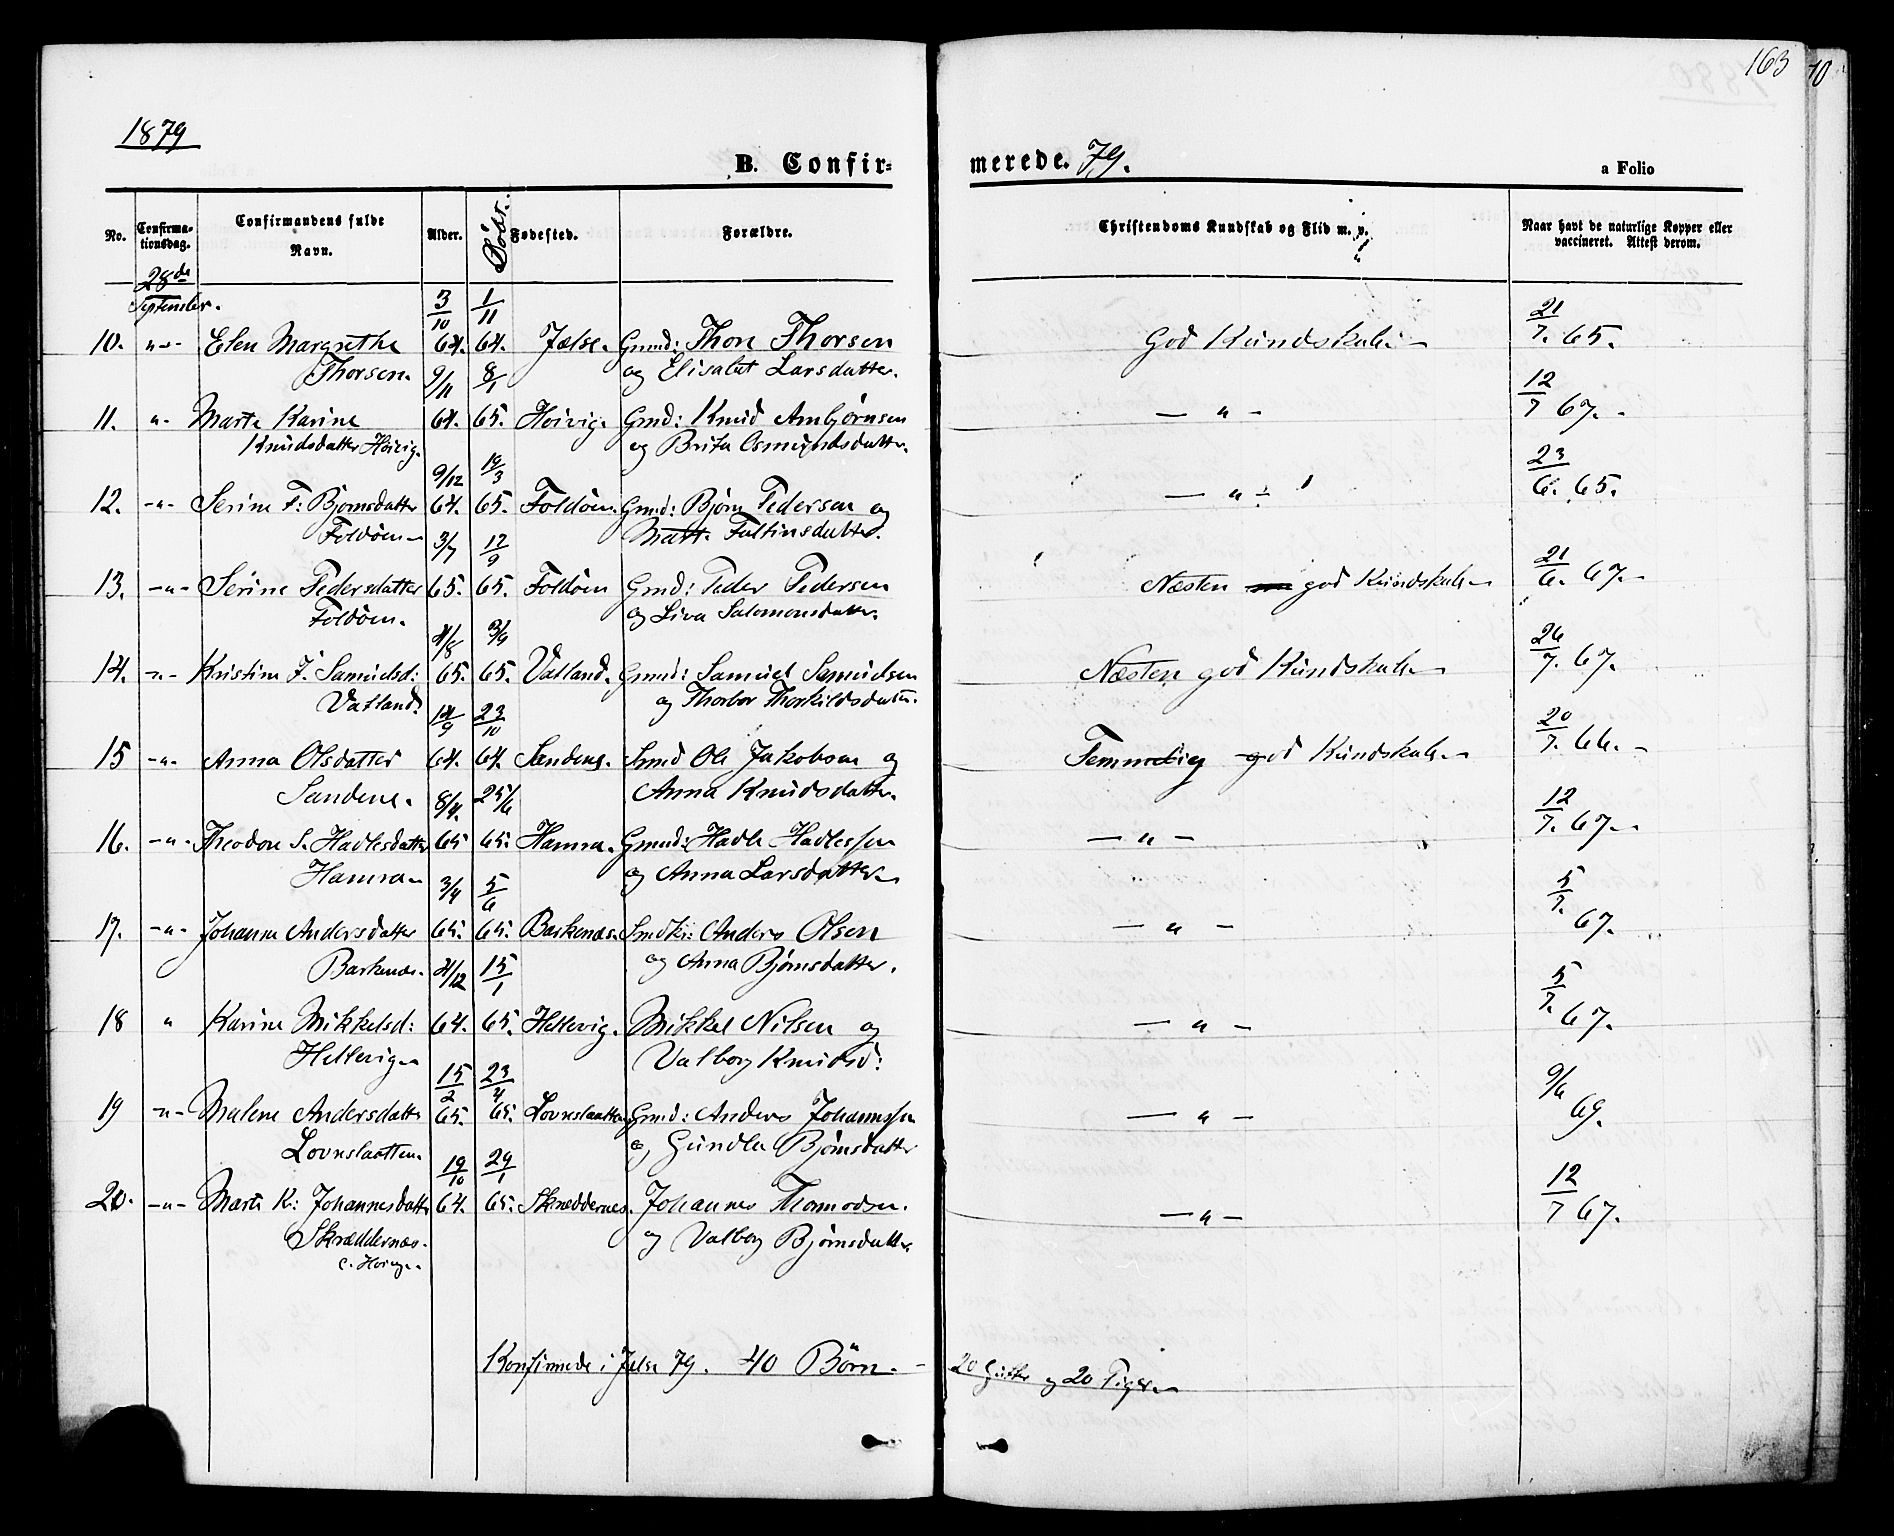 163
70
1879
B. Confirmerede. 79.
a Folio
No.
Confirmationsdag.
Confirmandens fulde Navn.
Alder.
Døbt.
Fødested.
Forældre.
Christendoms Kundskab og Flid m. v.
Naar havt de naturlige Kopper eller vaccineret. Attest derom.
28de September.
3/10 1/11 21/7. 65.
10. -"- Elen Margrethe 64. 64. Jælse. Gmd: Thore Thorsen God Kundskab.
Thorsen. og Elisabet Larsdatter.
9/11 8/1 12/7 67.
11. "- Marte Karine 64. 65. Hoivig. Gmd: Knud Ambjørnsen — " -
Knudsdatter Hoivig. og Brita Osmundsdatter.
9/12 19/3 23/6. 65.
12. -"- Serine F: Bjørnsdatter 64. 65. Foldøen. Gmd: Bjørn Pedersen og — " -
Foldøen. Marte Faltinsdatter.
3/7 17/9 21/6. 67.
13. -"- Serine Pedersdatter 65. 65. Foldøen Gmd: Peder Pedersen Næsten god Kundskab.
Foldøen. og Liva Salomonsdatter.
4/8 3/9 26/7. 67.
14. -"- Kristine F. Samuelsd: 65. 65. Vatland. Gmd: Samuel Samuelsen Næsten god Kundskab.
Vatland. og Thorbor Thorkildsdatter.
14/9 23/10 20/7. 66.
15 -"- Anna Olsdatter 64. 64. Sandene. Smd Ole Jakobsen og Temmelig god Kundskab.
Sandene. Anna Knudsdatter.
8/4. 25/6 12/7. 67.
16. -"- Theodore S. Hadlesdatter 65 65. Hamra. Gmd: Hadle Hadlessen — " -
Hamra. og Anna Larsdatter.
3/4 5/6 5/7. 67.
17. -"- Johanne Andersdatter 65. 65. Barkenæs. Smdkr: Anders Olsen — " -
Barkenæs. og Anna Bjørnsdatter.
4/12 15/1 5/7. 67.
18 " Karine Mikkelsd: 64. 65. Hettevig. Mikkel Nilsen og — " -
Hettevig. Valborg Knudsd:
15/2 23/4 9/6 69.
19 -"- Malene Andersdatter 65. 65. Lovnslaatten Gmd: Anders Johannessen — " -
Lovnslaatten. og Gundla Bjørnsdatter
19/10 29/1 12/7 67.
20. -"- Marte K: Johannesdatter 64. 65. Skræddernes. Johannes Thormodsen. — " -
Skræddernæs. og Valborg Bjørnsdatter
Konfirmede i Jelse 79. 40 Børn. - 20 Gutter og 20 Piger.